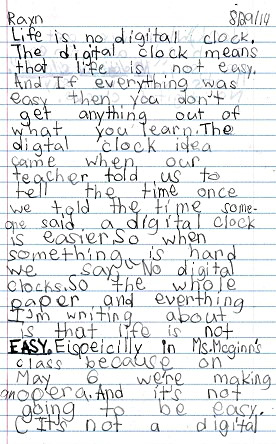 Rayn 5/29/14
Life is no digital clock.
The digital clock means
that life is not easy.
And If everything was
easy then you don't
get anything out of
what you learn. The
digtal clock idea
came when our
teacher told us to
tell the time once
we told the time some-
one said a digital clock
is easier. So when
something is hard
we say No digital
clocks. So the whole
paper and everthing
I'm writing about
is that life is not
EASY. Eispeicilly in Ms. Mcginn's
class because on
May 6 we're making
an opera. And it's not
going to be easy.
(It's not a digital